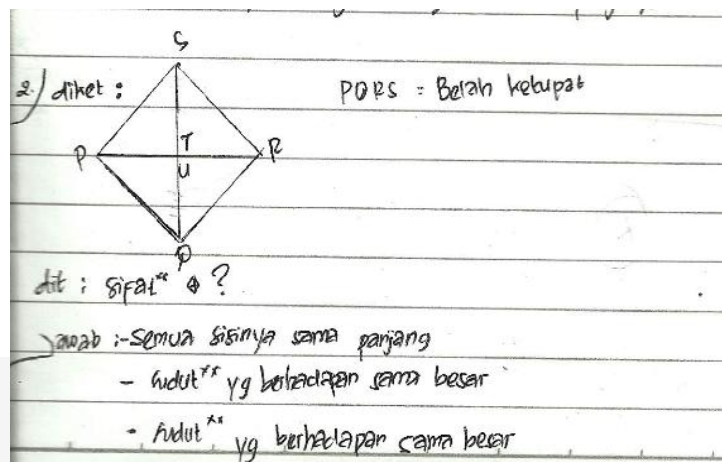 S
2.) diket :
PQRS = Belah ketupat
P
T
R
U
Q
dit : sifat** ?
Jawab :- Semua sisinya sama panjang
- Sudut** yg berhadapan sama besar
- Sudut** yg berhadapan sama besar